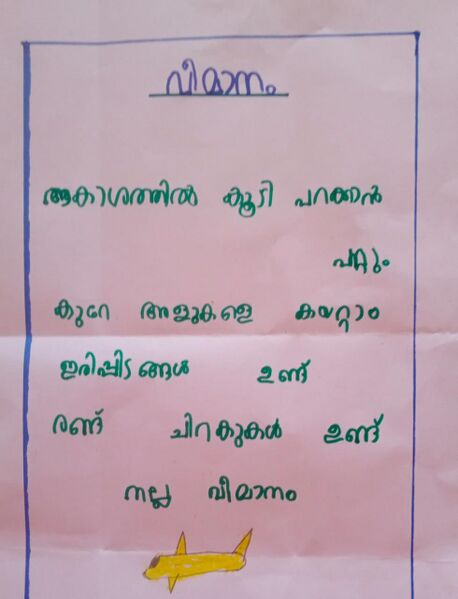 വീമാനം
ആകാശത്തിൽ കൂടി പറക്കാൻ
പറ്റും
കുറേ അളുകളെ കയറ്റാം
ഇരിപ്പിടങ്ങൾ ഉണ്ട്
രണ്ട് ചിറകുകൾ ഉണ്ട്
നല്ല വീമാനം